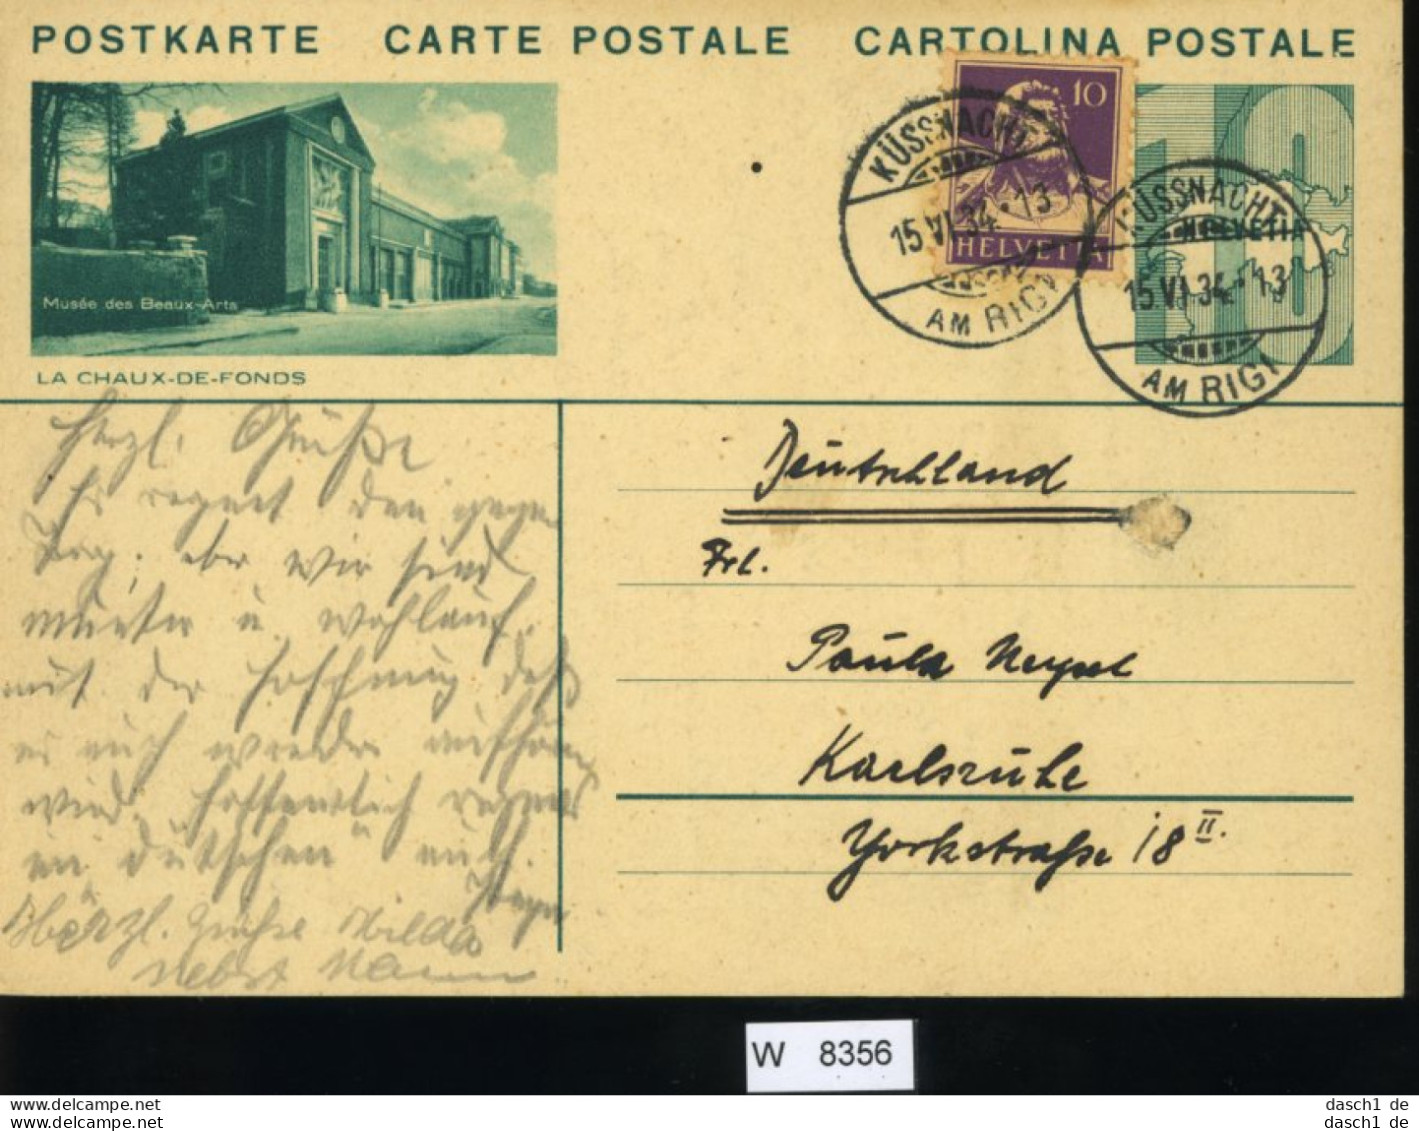 POSTKARTE CARTE POSTALE CARTOLINA POSTALE
10
HELVETIA
KÜSSNACHT
15.VI.34.-13
AM RIGI
10
HELVETIA
KÜSSNACHT
15.VI.34.-13
AM RIGI
Musée des Beaux-Arts
LA CHAUX-DE-FONDS
Herzl. Grüße
Es regnet den ganzen
Tag, aber wir sind
munter u. wohlauf,
mit der Hoffnung daß
es auch wieder aufhören
wird. Hoffentlich regnets
im "dütschen" auch.
Herzl. Grüsse Hilda
nebst Mann
Deutschland
Frl.
Paula
Karlsruhe
Yorkstraße 18 II.
W 8356
www.delcampe.net
www.delcampe.net
dasch1 de
dasch1 de